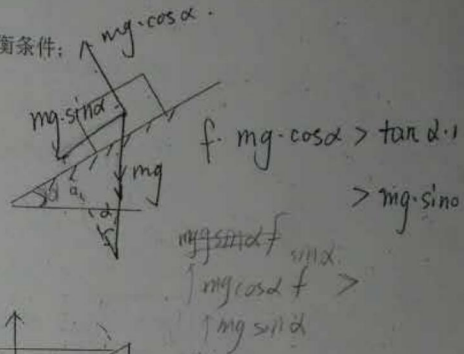 衡条件:
mg·cosα.
mg·sinα
mg
α
f· mg·cosα > tanα·
> mg·sin
mgsinα f
sinα
mgcosα f >
mg sinα